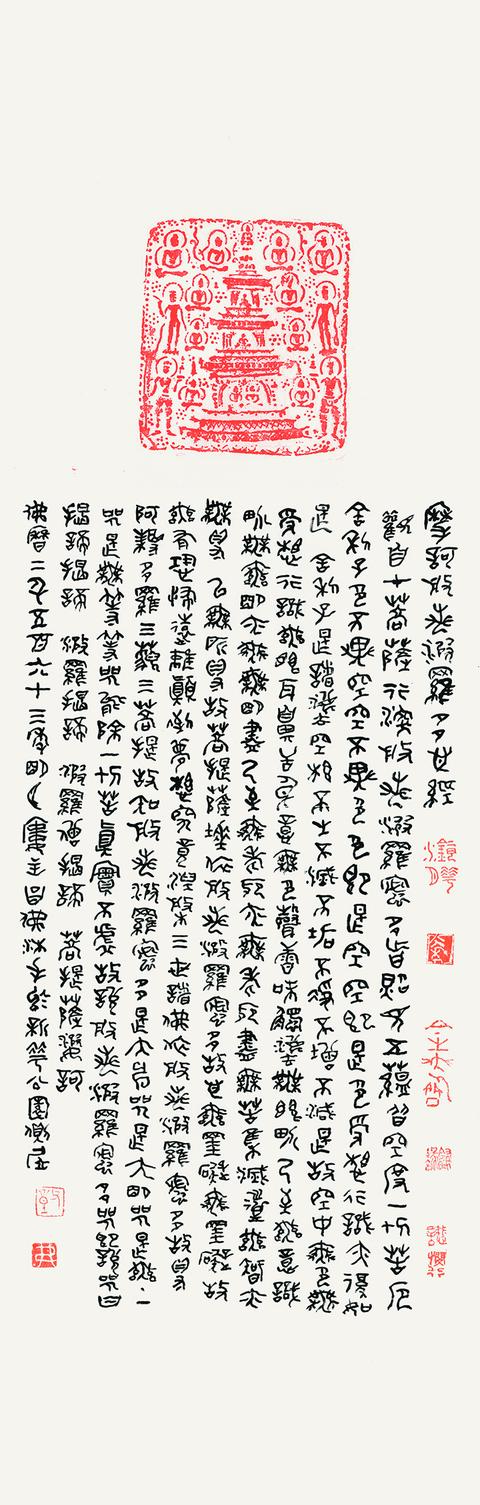 摩訶般若波羅蜜多心經
觀自在菩薩行深般若波羅蜜多時照見五蘊皆空度一切苦厄
舍利子色不異空空不異色色即是空空即是色受想行識亦復如
是舍利子是諸法空相不生不滅不垢不淨不增不減是故空中無色無
受想行識無眼耳鼻舌身意無色聲香味觸法無眼界乃至無意識
界無無明亦無無明盡乃至無老死亦無老死盡無苦集滅道無智亦
無得以無所得故菩提薩埵依般若波羅蜜多故心無罣礙無罣礙故
無有恐怖遠離顛倒夢想究竟涅槃三世諸佛依般若波羅蜜多故得
阿耨多羅三藐三菩提故知般若波羅蜜多是大神咒是大明咒是無上
咒是無等等咒能除一切苦真實不虛故說般若波羅蜜多咒即說咒曰
揭諦揭諦 波羅揭諦 波羅僧揭諦 菩提薩婆訶
佛曆二千五百六十三年